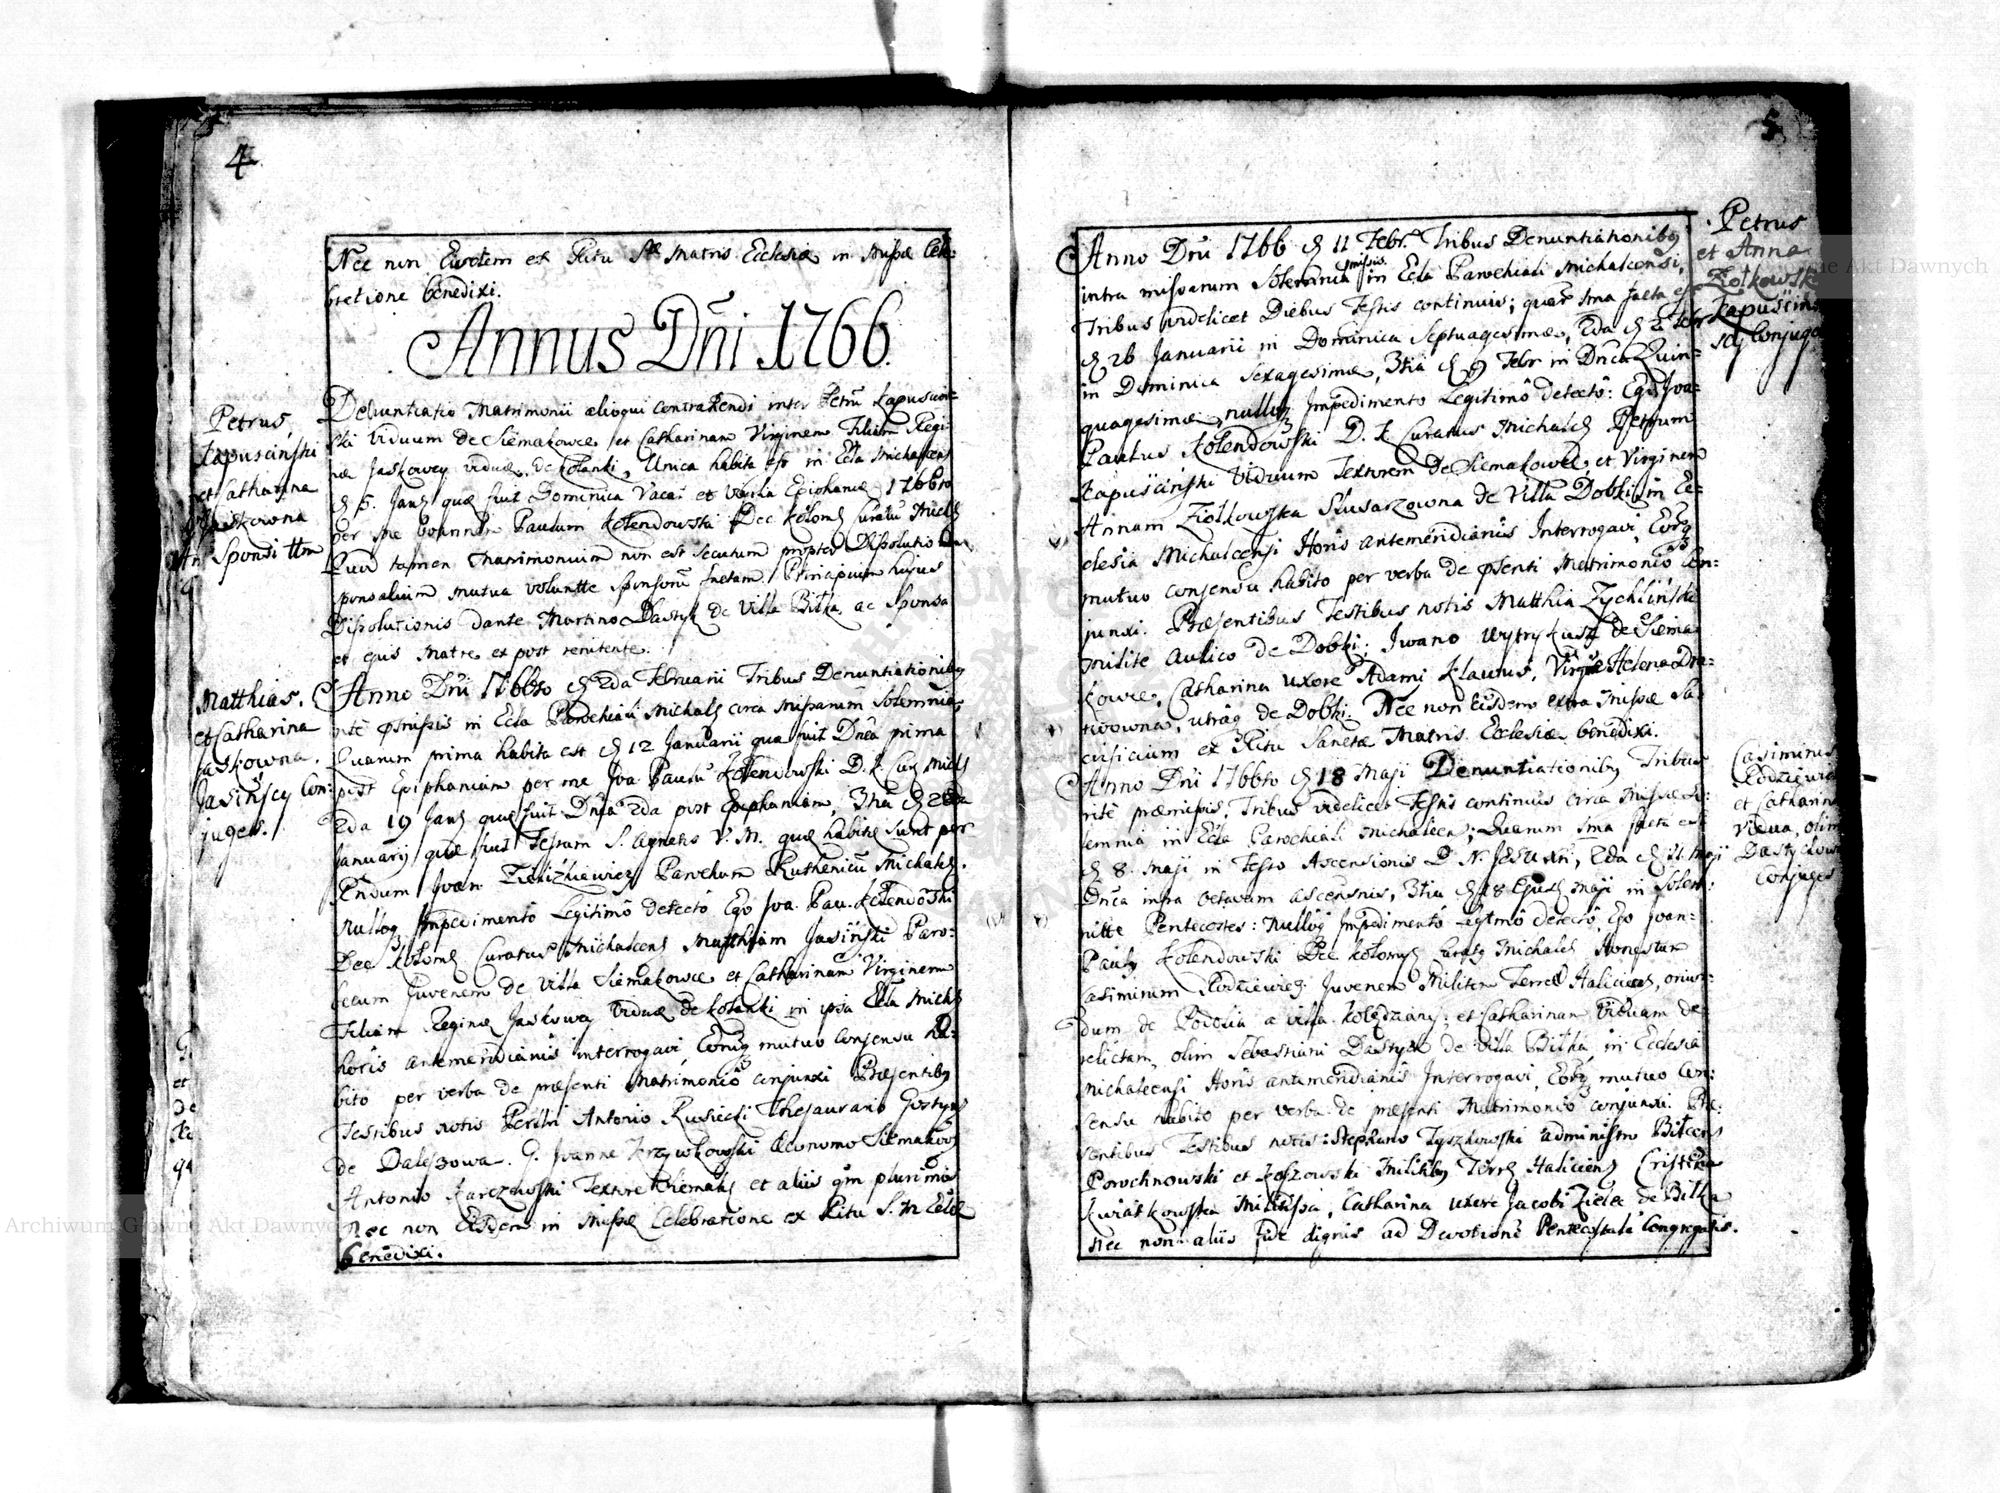 4
Nec non Eisdem ex Ritu Sae Matris Ecclesiæ in Missæ Cele-
bratione benedixi.
Annus Dñi 1766
Petrus
Kapusciński
et Catharina
Jaśkowna
Sponsi ttm
Denuntiatio Matrimonii alioqui contrahendi inter Petrũ Kapusciń-
ski viduum de Siemakowce et Catharinam Virginem Filiam Regi-
næ Jaskowey viduæ de Kołanki, Unica habita est in Ecla Michalcen
5. Janȷ quæ fuit Dominica Vacañ et Vigilia Epiphaniæ 1766to
per me Joannem Paulum Kolendowski Dec Kolom Curatũ Michȷ
Quod tamen Matrimonium non est secutum propter Dissolutionem
sponsalium mutua voluntte sponsorũ factam. Principium hujus
Dissolutionis dante Martino Dastyk de Villa Bitka, ac Sponsa
et ejus Matre ex post renitente.
Matthias
et Catharina
Jaskowna
Jasińscy Con-
juges.
Anno Dñi 1766to 2da Februarii Tribus Denuntiationibȝ
rite pmissis in Ecla Parochiali Michalȷ circa Missarum Solemnia,
Quarum prima habita est 12 Januarii quæ fuit Dñca prima
post Epiphaniam per me Joa Paulũ Kolendowski D. K. Curȷ Michȷ
2da 19 Janȷ quæ fuit Dñca 2da post Epiphaniam, 3tia
January quæ fuit Festum S. Agnetis V. M. quæ habitæ sunt per
Rñdum Joan. Parochum Ruthenicũ Michalȷ.
Nulloq Impedimentô Legitimô detectô Ego Joa. Pau. Kolendowski
Dec Kolomȷ Curatus Michalcenȷ Matthiam Jasiński Paro-
becum Juvenem de Villa Siemakowce et Catharinam Virginem
Filiam Reginæ Jaskowey Viduæ de Kołanki in ipsa Ecla Michȷ
horis antemeridianis interrogavi, Eorũq mutuo consensu ha-
bito per verba de præsenti Matrimoniô conjunxi Præsentibȝ
Testibus notis Antonio Rusiecki Thesaurario
de Daleszowa. G. Joanne Œconomo Siemakovȷ
Antonio Karczewski Textore Siemakȷ et aliis qm plurimis
Nec non Eisdem in Missæ Celebratione ex Ritu S. M. Eclæ
benedixi.
5
Petrus
et Anna
Ziółkowska
Kapuścińs-
scy Conjuges
Anno Dñi 1766 11 Febr. Tribus Denuntiationibȝ
intra missarum Solemnia pmissis in Ecla Parochiali Michalcensi,
Tribus videlicet Diebus Festis continuis; quarũ 1ma facta est
26 Januarii in Dominica Septuagesimæ, 2da 2 Febr
in Dominica Sexagesimæ, 3tia 9 Febr in Dñca Quin-
quagesimæ, nulloȝ Impedimento Legitimô detectô: Ego Joa-
Paulus Kolendowski D. K. Curatus Michalȷ Petrum
Kapuściński Viduum Textorem de Siemakowce, et Virginem
Annam Ziółkowska Slusarzowna de Villa Dobki, in Ec-
clesia Michalcensi Horis antemeridianis Interrogavi, Eorȝ
mutuo consensu habito per verba de psenti Matrimoniô Con-
junxi. Præsentibus Testibus notis Matthia Zychliński
milite Aulico de Dobki; Iwano Wytrykusz de Siema-
kowce, Catharina uxore Adami Klaunus, Virgine Helena Dra-
, utraq de Dobki. Nec non Eisdem extra Missæ Sa-
crificium ex Ritu Sanctæ Matris Ecclesiæ benedixi.
Casimirus
et Catharina
Vidua, olim
Dastykowa
Conjuges
Anno Dñi 1766to 18 Maji Denuntiationibȝ Tribus
rite præmissis, Tribus videlicet Festis continuis circa Missæ So-
lemnia in Ecla Parochiali Michalcen; Quarum 1ma facta est
8. Maji in Festo Ascensionis D. N. JESU Xti, 2da 11. Maji
Dñca infra octavam ascensnis, 3tia 18 Ejusȷ Maji in Solem-
nitte Pentecostes: nulloq Impedimentô Legtmô detectô, Ego Joan-
Paulȝ Kolendowski Dec Kolomȷ Curatȝ Michalȷ Honestum
Casimirum Juvenem Militem Terræ Haliciens, oriun-
dum de Podolia a villa Kolędziany; et Catharinam Viduam de-
relictam, olim Sebastiani Dastyk de Villa Bitka, in Ecclesia
Michalcensi Horis antemeridianis Interrogavi, Eorȝ mutuo Con-
sensu habito per verba de præsenti Matrimoniô conjunxi. Præ-
sentibus Testibus notis: Stephano Tyszkowski administro Bitcen
Porochnowski et Koszowski Militibȝ Terræ Haliciens Cristina
Kwiatkowska Militissa, Catharina uxore Jacobi Zielæ de Bitka
nec non aliis fide dignis ad Devotionẽ Pentecostalẽ Congregatis.
Archiwum Główne Akt Dawnych